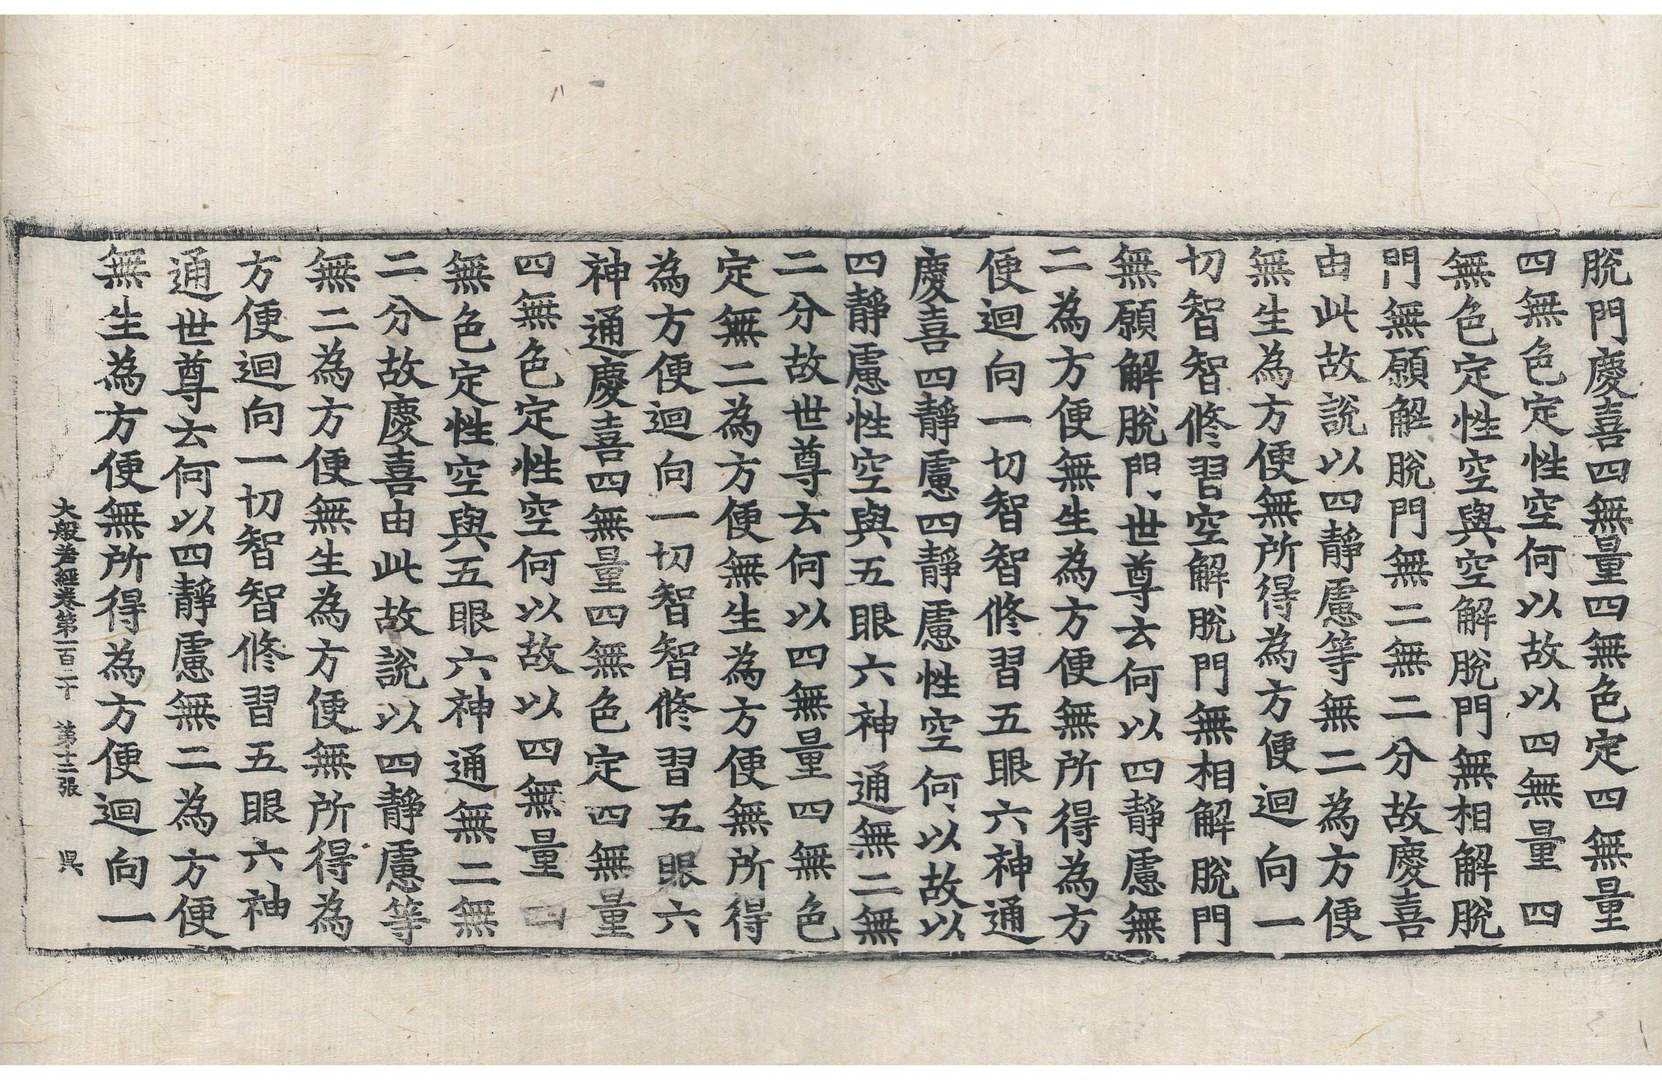 脫門慶喜四無量四無色定四無量
四無色定性空何以故以四無量四
無色定性空與空解脫門無相解脫
門無願解脫門無二無二分故慶喜
由此故說以四靜慮等無二為方便
無生為方便無所得為方便迴向一
切智智修習空解脫門無相解脫門
無願解脫門世尊云何以四靜慮無
二為方便無生為方便無所得為方
便迴向一切智智修習五眼六神通
慶喜四靜慮四靜慮性空何以故以
四靜慮性空與五眼六神通無二無
二分故世尊云何以四無量四無色
定無二為方便無生為方便無所得
為方便迴向一切智智修習五眼六
神通慶喜四無量四無色定四無量
四無色定性空何以故以四無量四
無色定性空與五眼六神通無二無
二分故慶喜由此故說以四靜慮等
無二為方便無生為方便無所得為
方便迴向一切智智修習五眼六神
通世尊云何以四靜慮無二為方便
無生為方便無所得為方便迴向一
大般若經卷第一百二十　第十二張　昃